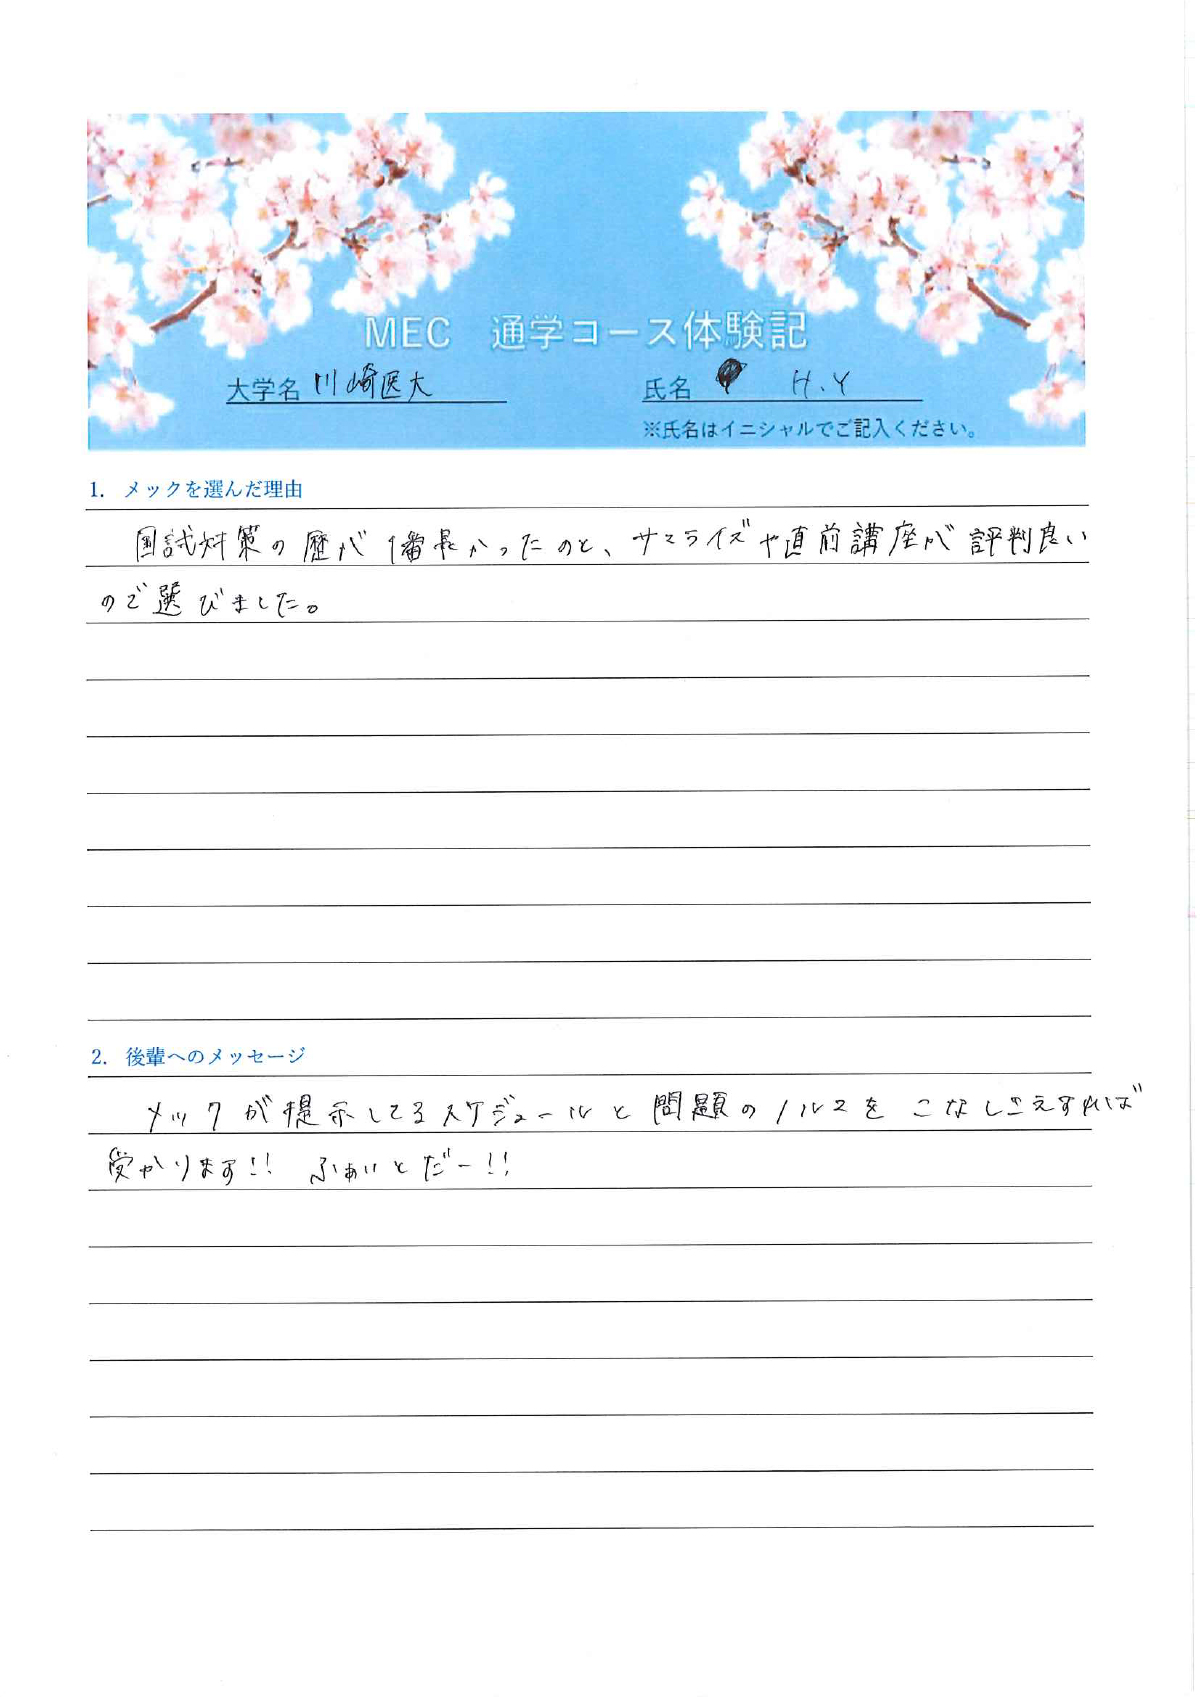 MEC 通学コース体験記
大学名 川崎医大 氏名 H.Y
※氏名はイニシャルでご記入ください。
1. メックを選んだ理由
国試対策の歴が1番長かったのと、サマライズや直前講座が評判良い
ので選びました。
2. 後輩へのメッセージ
メックが提示してるスケジュールと問題のノルマをこなしさえすれば
受かります!! ふぁいとだー!!